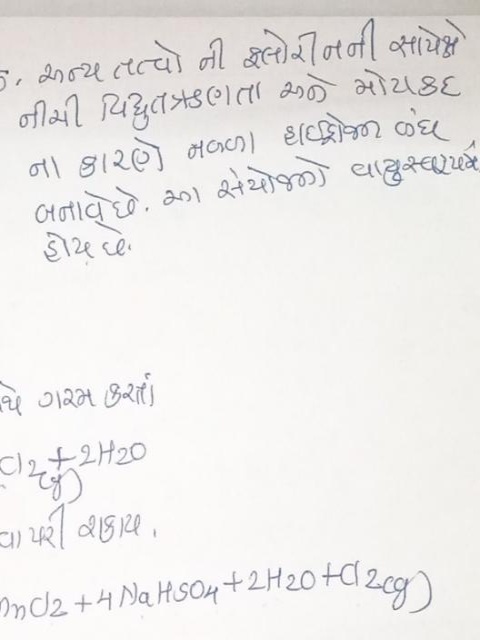 છે. અન્ય તત્વો ની ફ્લોરીનની સાપેક્ષે
નીચી વિદ્યુતઋણતા અને મોટાકદ
ના કારણે નબળા હાઇડ્રોજન બંધ
બનાવે છે. આ સંયોજનો વાયુસ્વરૂપમાં
હોય છે.
ગરમ કરતાં
Cl2(g) + 2H2O
વાપરી શકાય.
MnCl2 + 4NaHSO4 + 2H2O + Cl2(g)